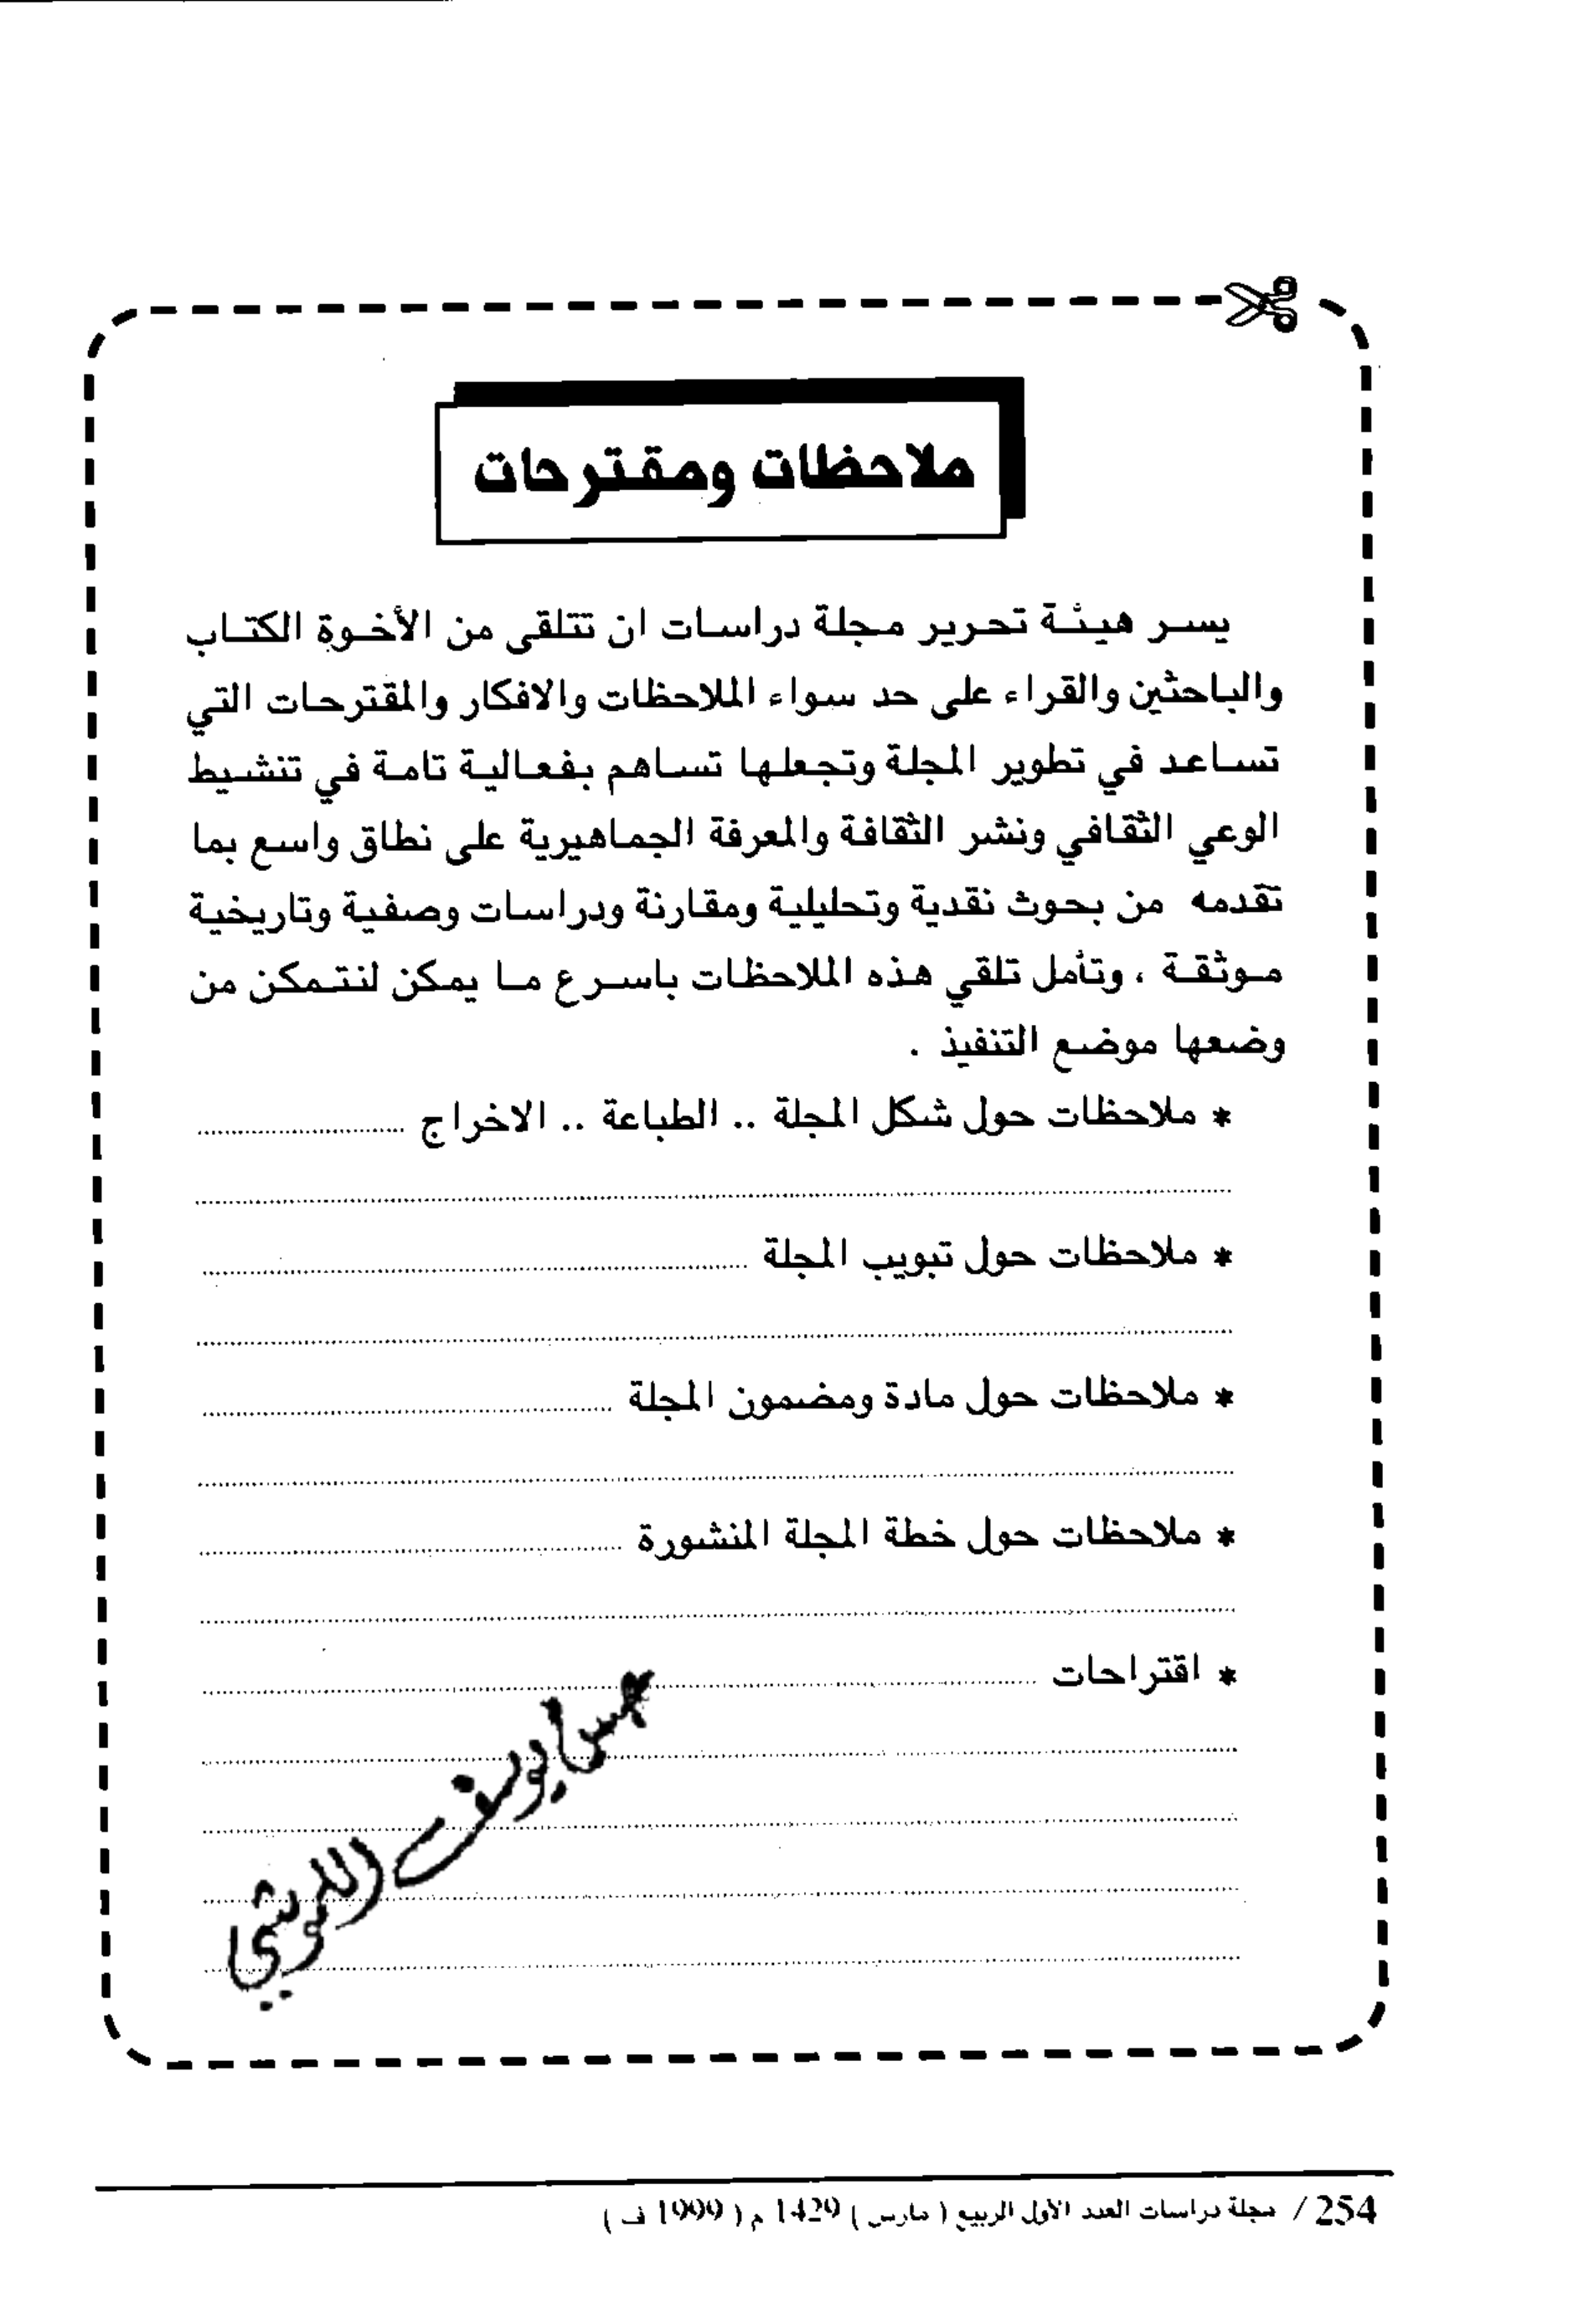 ملاحظات ومقترحات
يسر هيئة تحرير مجلة دراسات ان تتلقى من الأخوة الكتاب
والباحثين والقراء على حد سواء الملاحظات والافكار والمقترحات التي
تساعد في تطوير المجلة وتجعلها تساهم بفعالية تامة في تنشيط
الوعي الثقافي ونشر الثقافة والمعرفة الجماهيرية على نطاق واسع بما
تقدمه من بحوث نقدية وتحليلية ومقارنة ودراسات وصفية وتاريخية
موثقة ، وتأمل تلقي هذه الملاحظات باسرع ما يمكن لنتمكن من
وضعها موضع التنفيذ .
* ملاحظات حول شكل المجلة .. الطباعة .. الاخراج
* ملاحظات حول تبويب المجلة
* ملاحظات حول مادة ومضمون المجلة
* ملاحظات حول خطة المجلة المنشورة
* اقتراحات
يوسف
254 / مجلة دراسات العدد الأول الربيع ( مارس ) 1429 م ( 1999 ف )